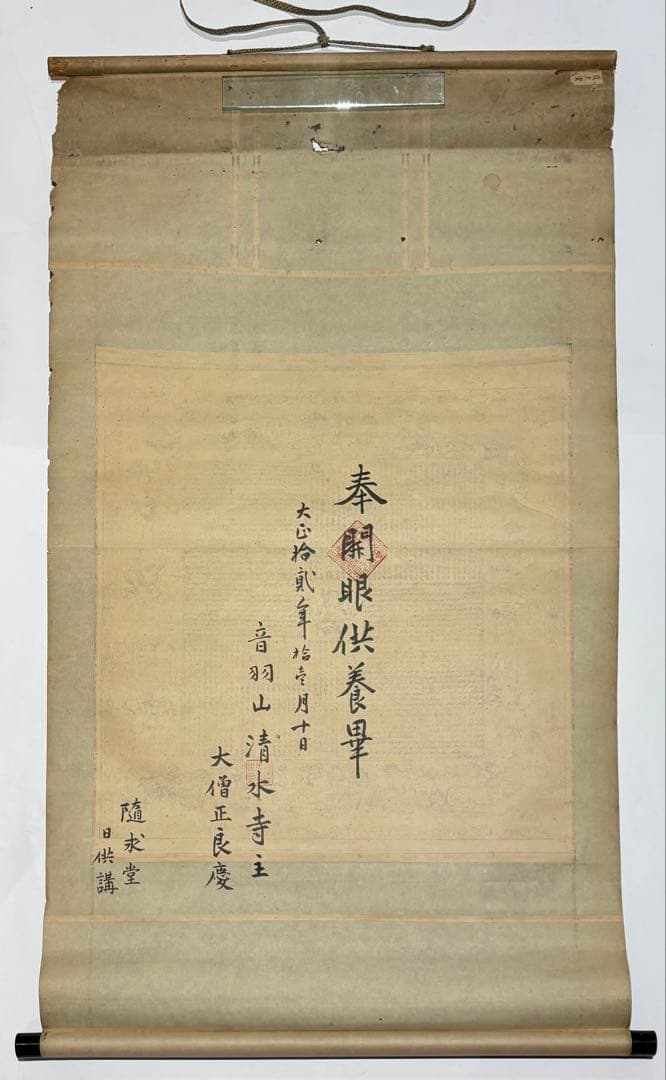 奉開眼供養畢
大正拾貳年拾壹月十日
音羽山清水寺主
大僧正良慶
隨求堂
日供講